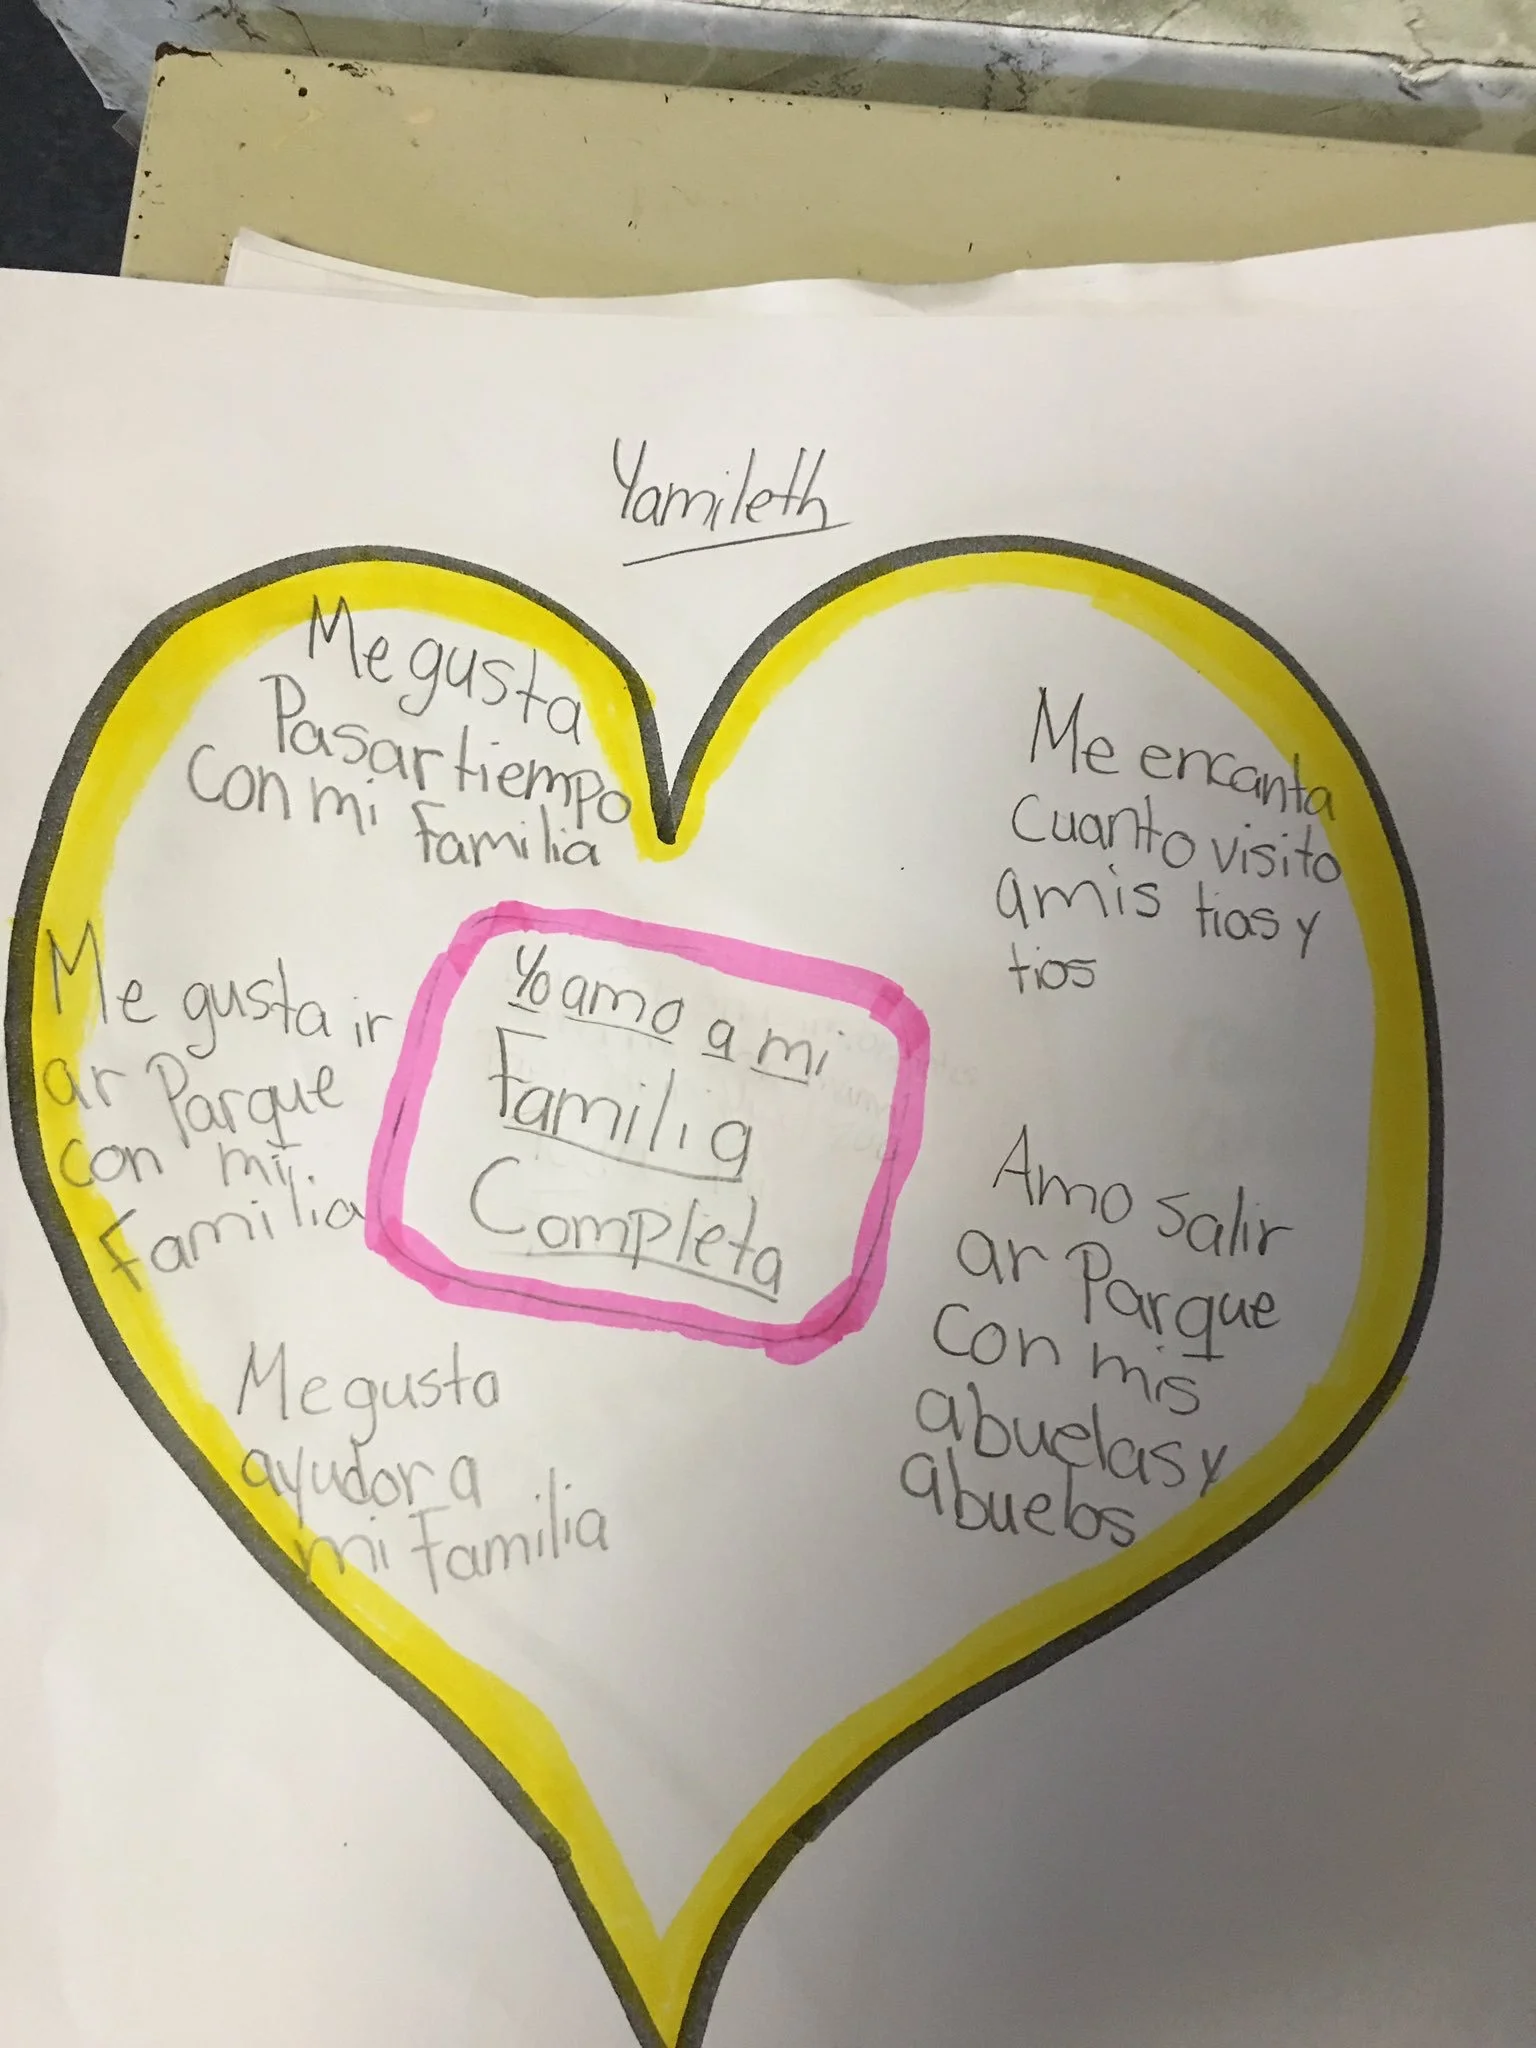 Yamileth
Me gusta
Pasar tiempo
con mi Familia
Me encanta
cuanto visito
a mis tias y
tios
Yo amo a mi
Familia
Completa
Me gusta ir
ar Parque
con mi
Familia
Amo salir
ar Parque
con mis
abuelas y
abuelos
Me gusta
ayudor a
mi Familia